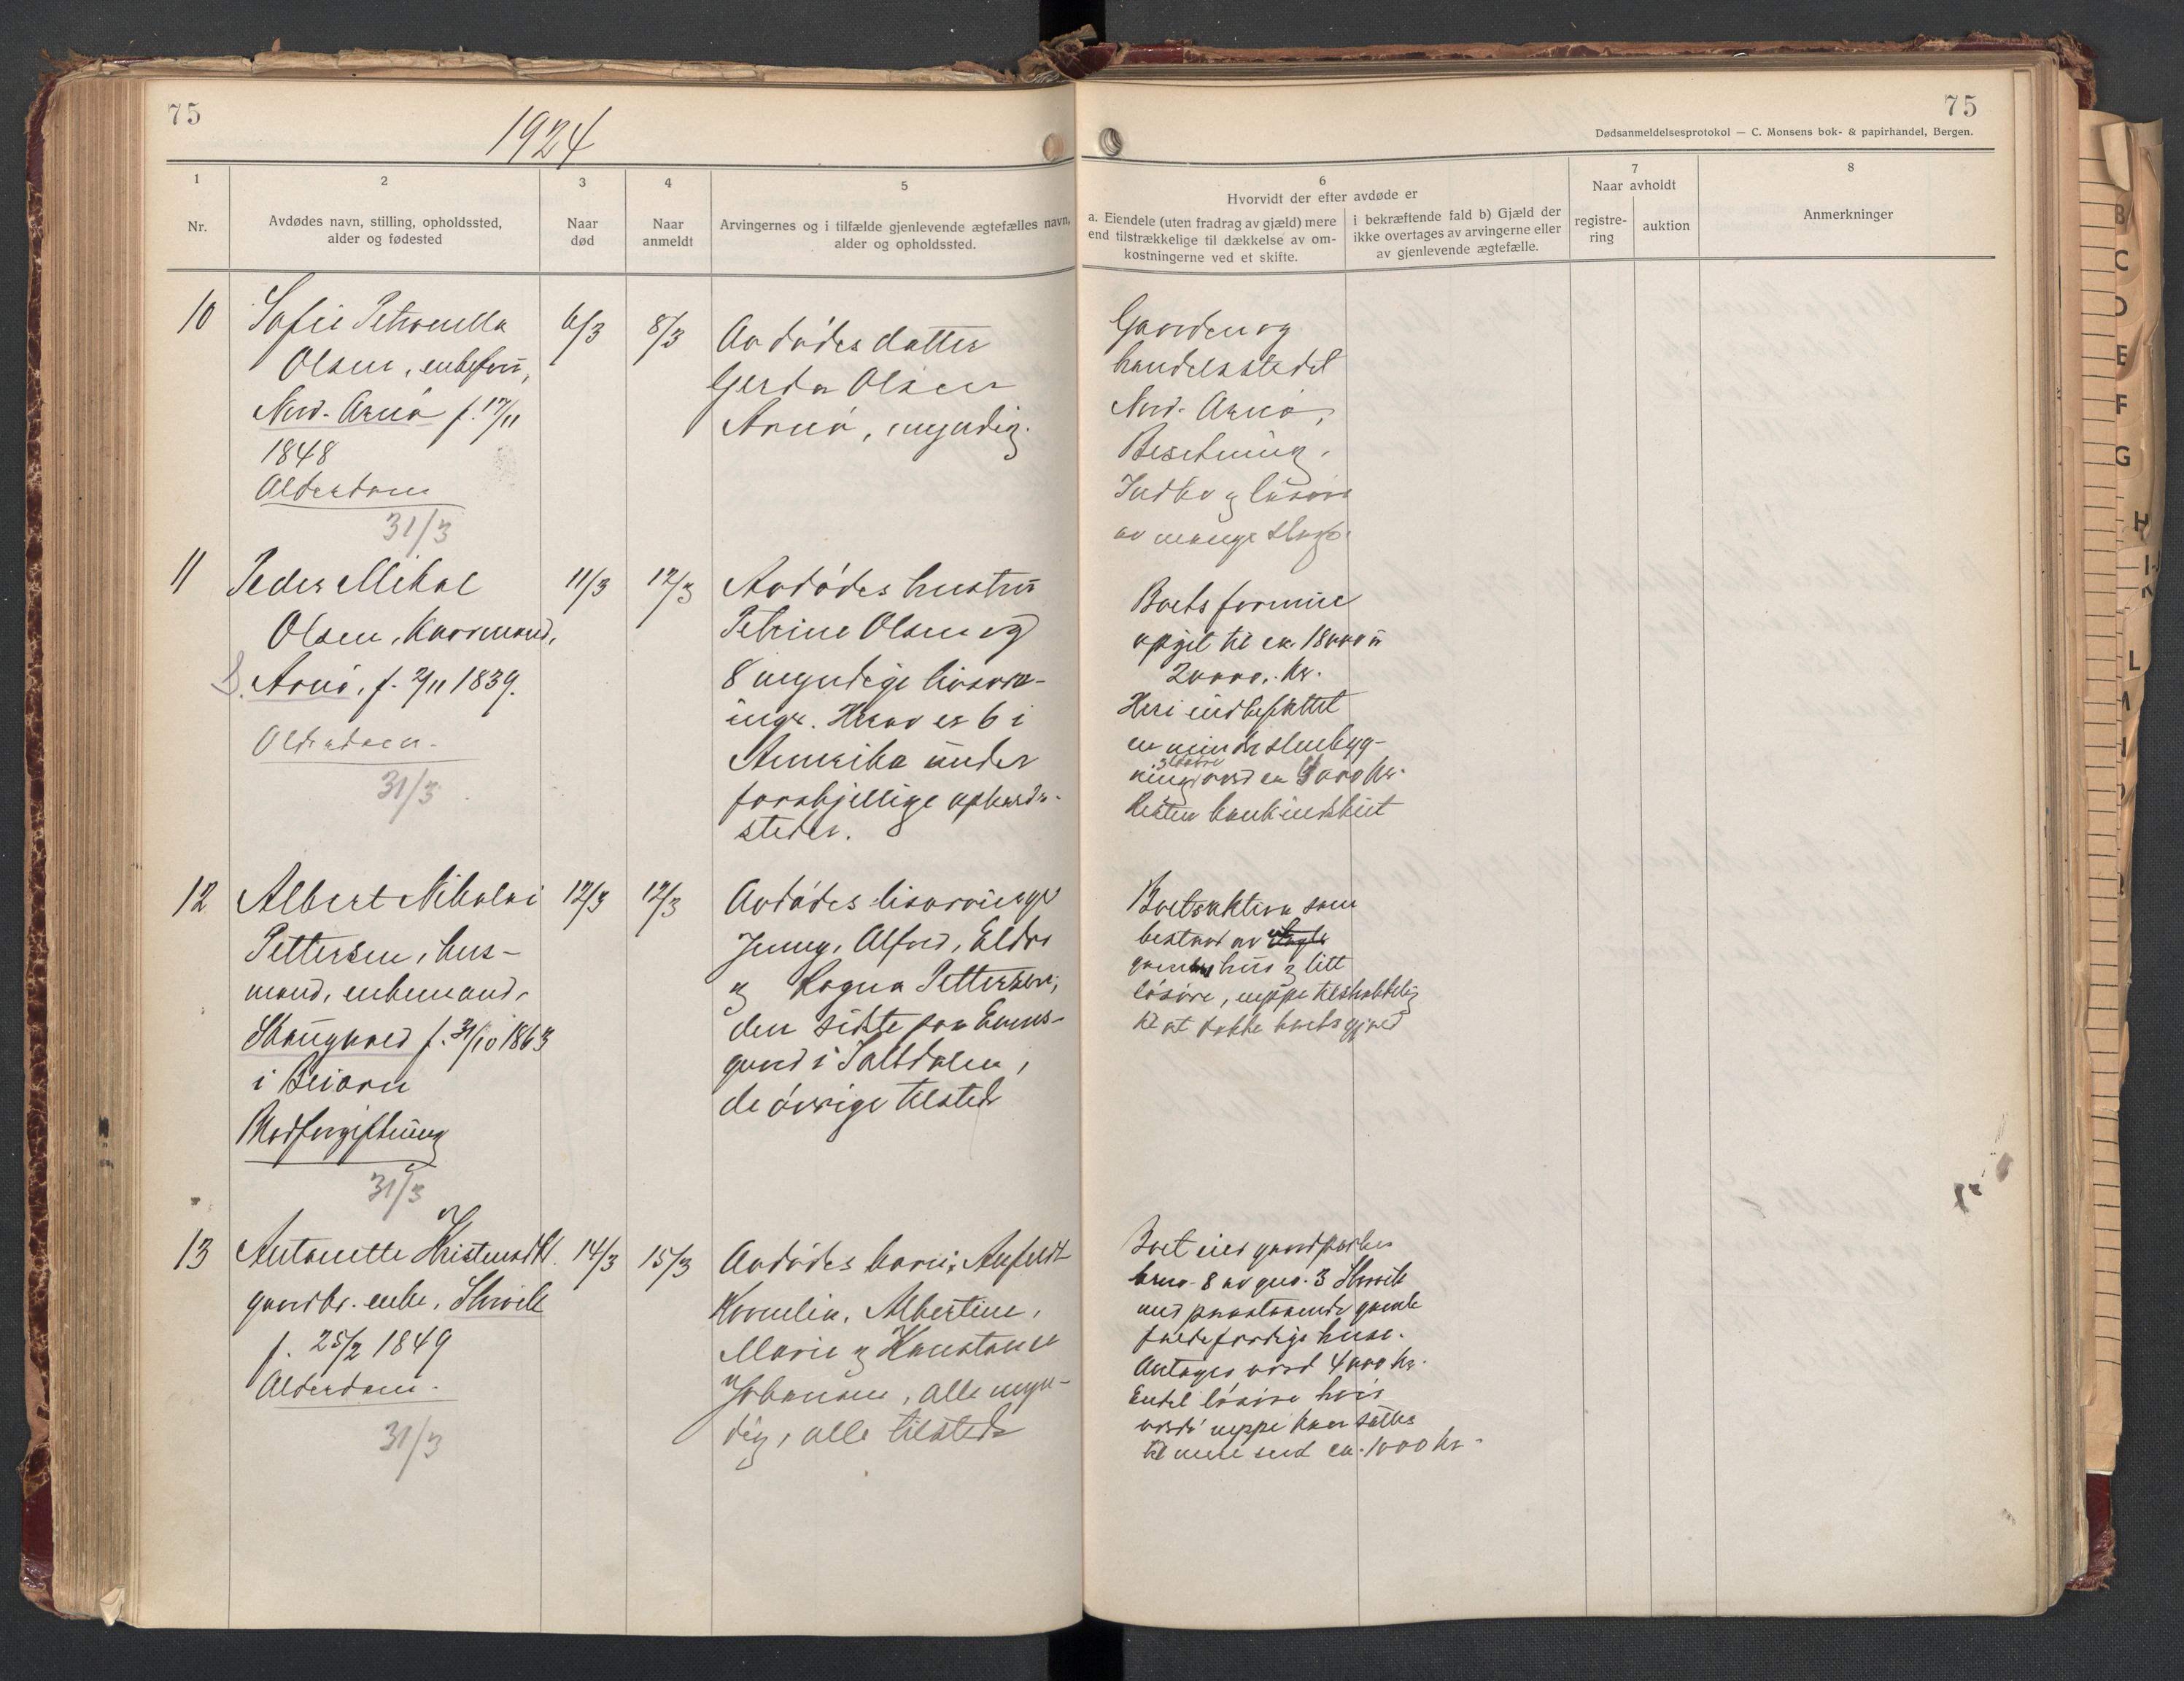 75
1924
75
Dødsanmeldelsesprotokol — C. Monsens bok- & papirhandel, Bergen.
1
Nr.
2
Avdødes navn, stilling, opholdssted,
alder og fødested
3
Naar
død
4
Naar
anmeldt
5
Arvingernes og i tilfælde gjenlevende ægtefælles navn,
alder og opholdssted.
6
Hvorvidt der efter avdøde er
a. Eiendele (uten fradrag av gjæld) mere
end tilstrækkelige til dækkelse av om-
kostningerne ved et skifte.
i bekræftende fald b) Gjæld der
ikke overtages av arvingerne eller
av gjenlevende ægtefælle.
7
Naar avholdt
registre-
ring
auktion
8
Anmerkninger
10
Sofie Petronella
Olsen, enkefru,
Nord-Arnø f. 17/11
1848
Alderdom
31/3
6/3
8/3
Avdødes datter
Gerda Olsen
Arnø, myndig.
Gaarden og
handelsstedet
Nord-Arnø,
Besetning,
Indbo og løsøre
av mange slags.
11
Peder Mikal
Olsen, kaarmand,
S. Arnø, f. 2/11 1839.
Alderdom.
31/3
11/3
12/3
Avdødes hustru
Petrine Olsen og
8 myndige livsarv-
inger. Herav er 6 i
Amerika under
forskjellige opholds-
steder.
Boets formue
opgit til ca. 18000 à
20000,- kr.
Heri indbefattet
en mindre stuebyg-
ning, løsøre
værd ca 4000 kr.
Resten bankindskud
12
Albert Nikolai
Pettersen, hus-
mand, enkemand,
Skaugvold f. 31/10 1863
i Beiarn
Blodforgiftning
31/3
12/3
12/3
Avdødes livsarvinger
Jenny, Alfred, Eldor
og Ragna Pettersen,
den sidste paa Evens-
gaard i Saltdalen,
de øvrige tilsteds
Boets aktiva som
bestaar av
gammel hus og litt
løsøre, neppe tilstrækkelig
til at dække boets gjæld
13
Antonette Kristensdtr.
gaardbr. enke, Storvik
f. 25/2 1849
Alderdom.
31/3
14/3
15/3
Avdødes barn: Anfeldt
Kornelia, Albertine,
Marie og Konstance
Johansen, alle myn-
dig, alle tilsteds
Boet eier gaardparten
brno. 8 av gno. 3 Storvik
med paastaaende gamle
faldefærdige huse.
Antages værd 4000 kr.
Endel løsøre hvis
værdi neppe kan sættes
til mere end ca. 1000 kr.
B
C
D
E
F
G
H
L